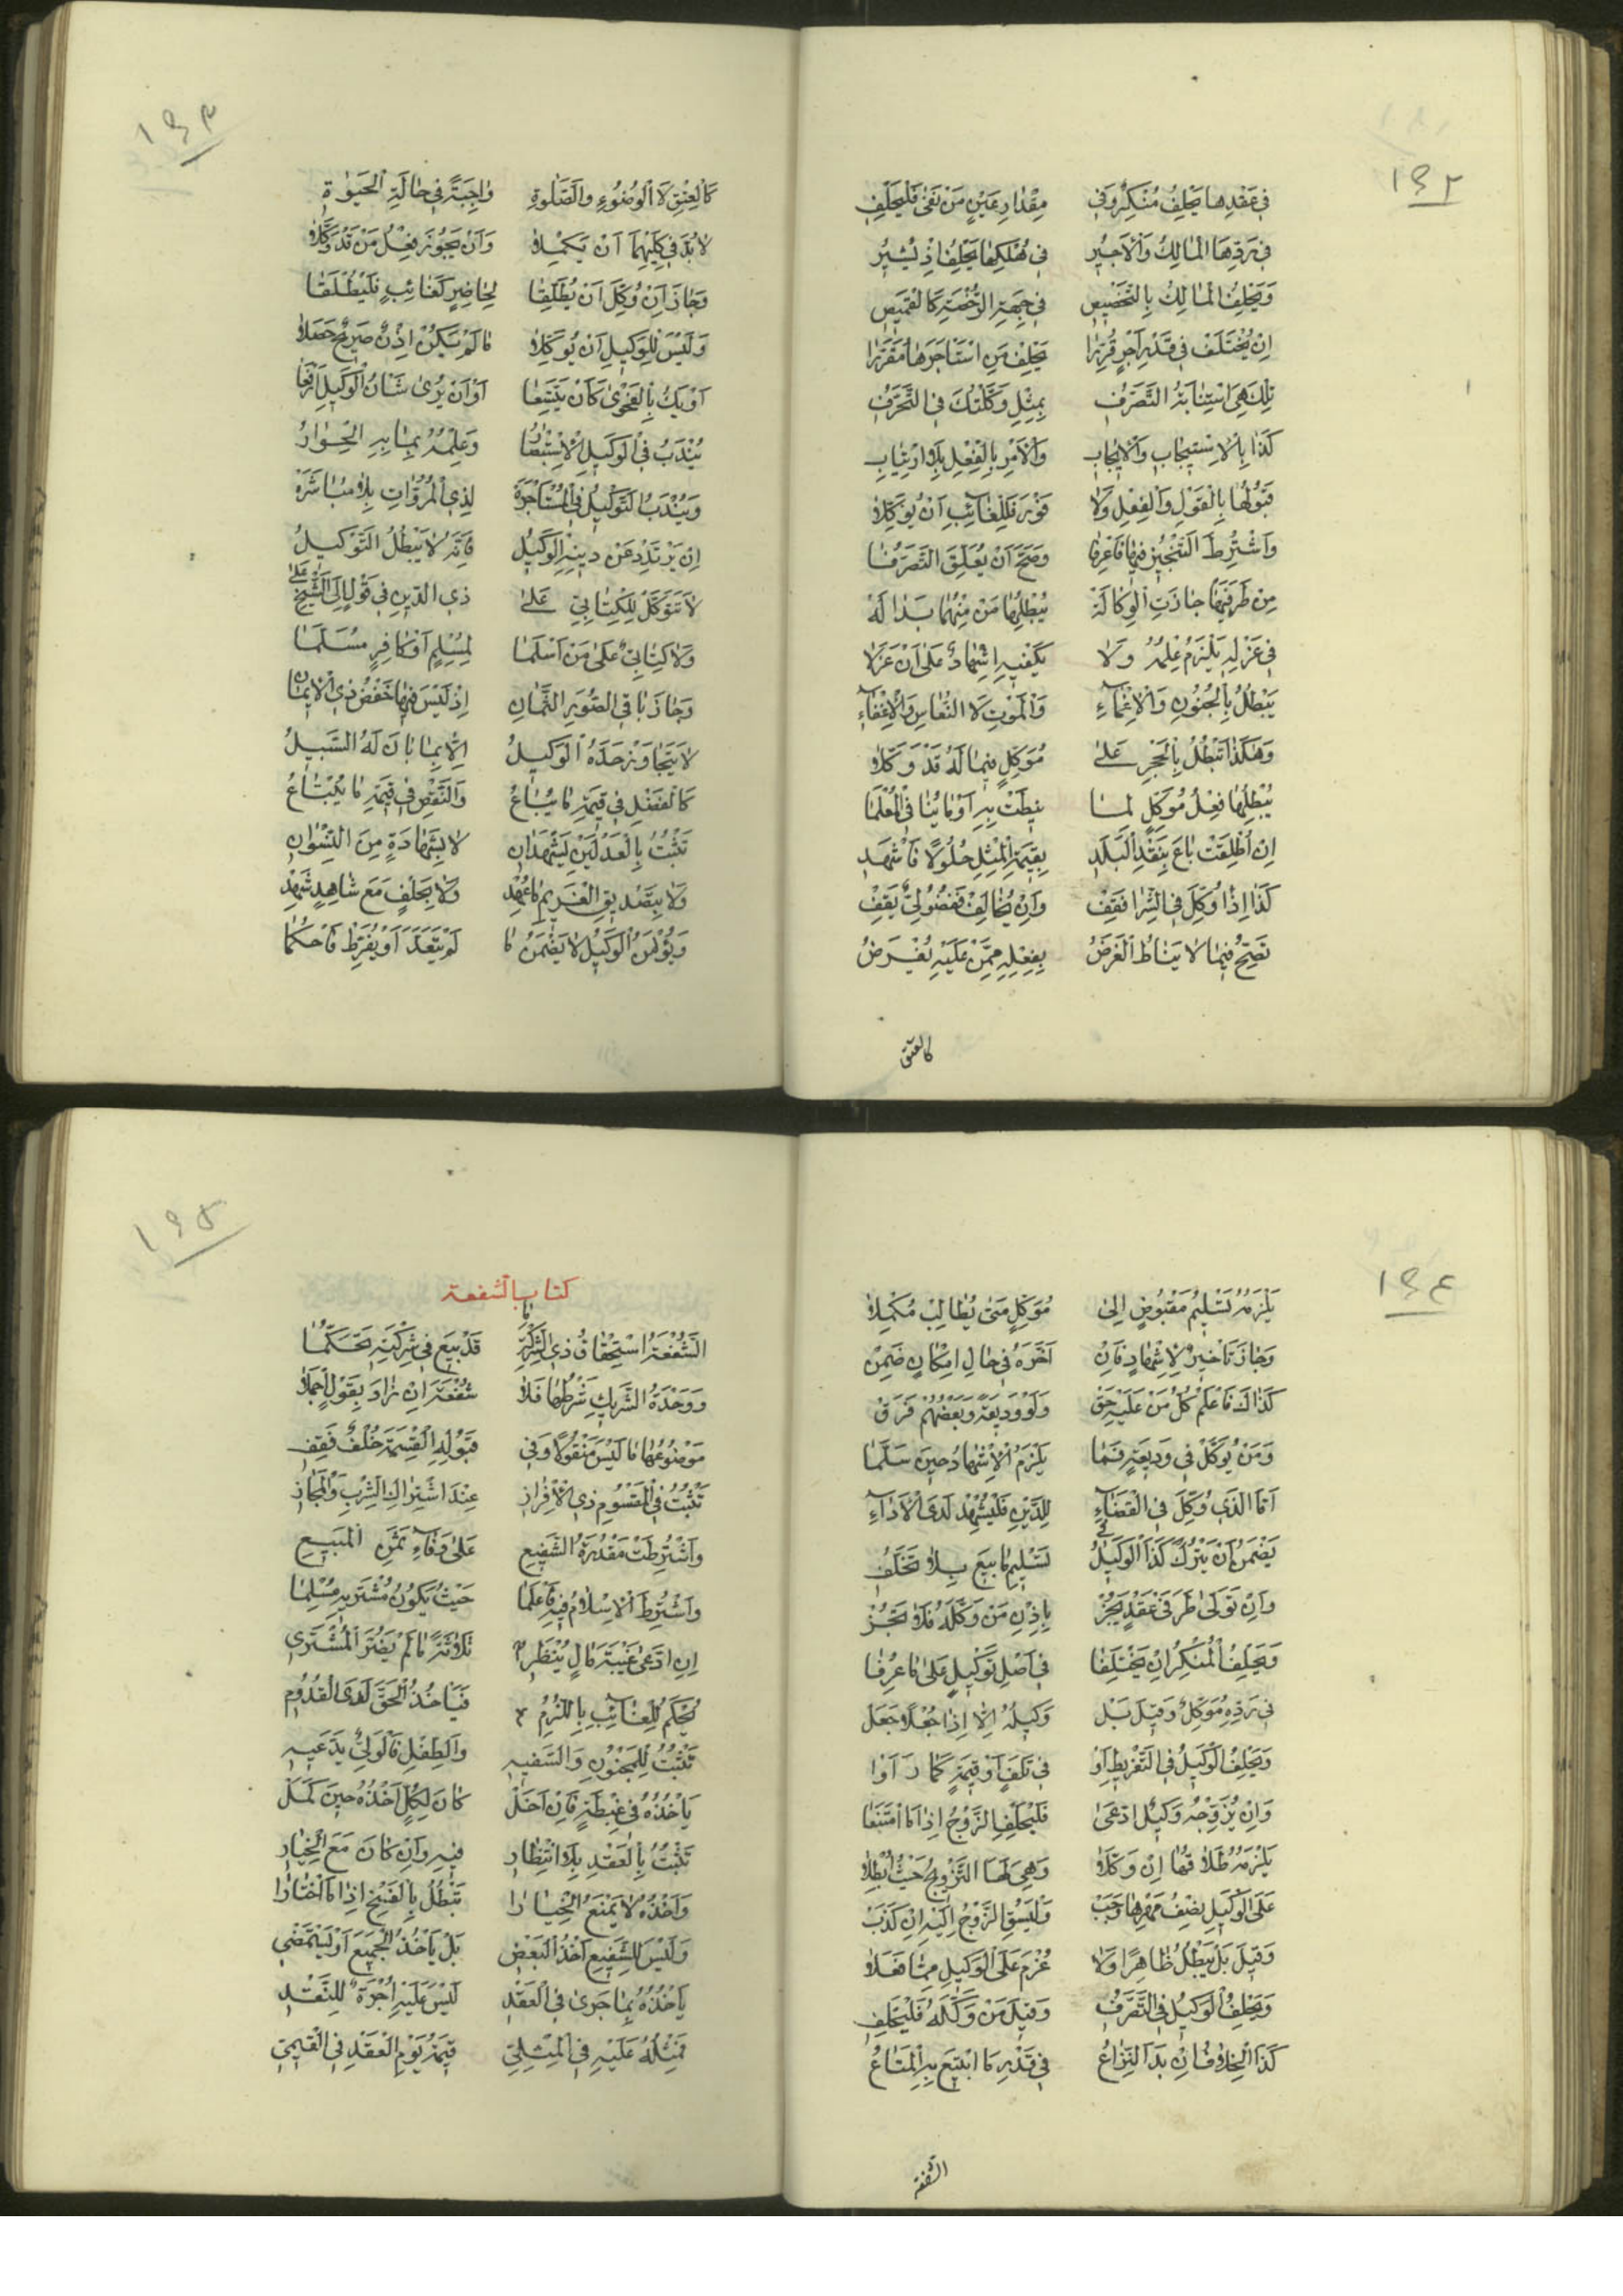 ١٩٢
فِي عَقْدِهَا يَحْلِفُ مُنْكِرٌ وَفِي مِقْدَارِ عَيْنٍ مَنْ نَفَى فَلْيَحْلِفِ
فِي رَدِّهَا الْمَالِكُ وَالْأَجِيرُ فِي هُلْكِهَا يَحْلِفُ إِذْ يُشِيرُ
وَيَحْلِفُ الْمَالِكُ بِالتَّخْصِيصِ فِي جِهَةِ الرُّخْصَةِ كَالْقَمِيصِ
إِنْ يُخْتَلَفْ فِي قَدْرِ أَجْرٍ قُرِّرَا يَحْلِفُ مَنِ اسْتَأْجَرَهَا مُقَرِّرَا
تِلْكَ هِيَ اسْتِنَابَةُ التَّصَرُّفِ بِمِثْلِ وَكَّلْتُكَ فِي التَّحَرُّفِ
كَذَا بِالْاِسْتِيجَابِ وَالْإِيجَابِ وَالْأَمْرِ بِالْفِعْلِ بِلَا ارْتِيَابِ
قَبُولُهَا بِالْقَوْلِ وَالْفِعْلِ وَلَا فَوْرَ فَلِلْغَائِبِ أَنْ يُوَكِّلَا
وَاشْتُرِطَ التَّنْجِيزُ فِيهَا فَاعْرِفَا وَصَحَّ أَنْ يُعَلِّقَ التَّصَرُّفَا
مِنْ طَرَفَيْهَا جَازَتِ الْوَكَالَةْ يُبْطِلُهَا مَنْ مِنْهُمَا بَدَا لَهُ
فِي عَزْلِهِ يَلْزَمُ عِلْمُهُ وَلَا يَكْفِيهِ إِشْهَادٌ عَلَى أَنْ عَزَلَا
يَبْطُلُ بِالْجُنُونِ وَالْإِغْمَاءِ وَالْمَوْتِ لَا النُّعَاسِ وَالْإِغْفَاءِ
وَهٰكَذَا تَبْطُلُ بِالْحَجْرِ عَلَى مُوَكِّلٍ فِيمَا لَهُ قَدْ وَكَّلَا
يُبْطِلُهَا فِعْلُ مُوَكِّلٍ لِمَا نِيطَتْ بِهِ أَوْ مَا يُنَافِي الْمُعْلَمَا
إِنْ أُطْلِقَتْ بَاعَ بِنَقْدِ الْبَلَدِ بِقِيمَةِ الْمِثْلِ حُلُولًا فَاشْهَدِ
كَذَا إِذَا وُكِّلَ فِي الشِّرَا فَقِفْ وَإِنْ يُخَالِفْ فَفُضُولِيٌّ يَقِفْ
تَصِحُّ فِيمَا لَا يُنَاطُ الْغَرَضُ بِفِعْلِهِ مِمَّنْ عَلَيْهِ يُفْرَضُ
كالعتق
١٩٣
كَالْعِتْقِ لَا الْوُضُوءِ وَالصَّلٰوةِ وَاجِبَةً فِي حَالَةِ الْحَيٰوةِ
لَا بُدَّ فِي كِلَيْهِمَا أَنْ يَكْمِلَا وَأَنْ يَجُوزَ فِعْلُ مَنْ قَدْ وَكَّلَا
وَجَازَ أَنْ وُكِّلَ أَنْ يُطَلِّقَا لِحَاضِرٍ كَغَائِبٍ فَلْيُطْلَقَا
وَلَيْسَ لِلْوَكِيلِ أَنْ يُوَكِّلَا مَا لَمْ يَكُنْ إِذْنٌ صَرِيحٌ جَعَلَا
أَوْ يَكُ بِالْفَحْوَى كَأَنْ يَتَّسِعَا أَوْ أَنْ يُرَى شَأْنُ الْوَكِيلِ أَرْفَعَا
يُنْدَبُ فِي الْوَكِيلِ الْاِسْتِبْصَارُ وَعِلْمُهُ بِمَا بِهِ الْحِوَارُ
وَيُنْدَبُ التَّوْكِيلُ فِي الْمُشَاجَرَةْ لِذِي الْمُرُوَّاتِ بِلَا مُبَاشَرَةْ
إِنْ يَرْتَدِدْ عَنْ دِينِهِ الْوَكِيلُ فَإِنَّهُ لَا يَبْطُلُ التَّوْكِيلُ
لَا تَتَوَكَّلْ لِلْكِتَابِيِّ عَلَى ذِي الدِّينِ فِي قَوْلٍ إِلَى الشَّيْخِ عَلَا
وَلَا كِتَابِيٌّ عَلَى مَنْ أَسْلَمَا لِمُسْلِمٍ أَوْ كَافِرٍ مُسَلَّمَا
وَجَازَ بَاقِي الصُّوَرِ الثَّمَانِ إِذْ لَيْسَ فِيهَا خَفْضُ ذِي الْإِيمَانِ
لَا يَتَجَاوَزْ حَدَّهُ الْوَكِيلُ إِلَّا بِمَا بَانَ لَهُ السَّبِيلُ
كَالْفَضْلِ فِي قِيمَةِ مَا يُبَاعُ وَالنَّقْصِ فِي قِيمَةِ مَا يُبْتَاعُ
تَثْبُتُ بِالْعَدْلَيْنِ يَشْهَدَانِ لَا بِشَهَادَةٍ مِنَ النِّسْوَانِ
وَلَا بِتَصْدِيقِ الْغَرِيمِ مَا عُهِدْ وَلَا بِحَلْفٍ مَعَ شَاهِدٍ شَهِدْ
وَيُؤْمَنُ الْوَكِيلُ لَا يَضْمَنُ مَا لَمْ يَتَعَدَّ أَوْ يُفَرِّطْ فَاحْكُمَا
١٩٤
يَلْزَمُهُ تَسْلِيمُ مَقْبُوضٍ إِلَى مُوَكِّلٍ مَتَى يُطَالِبْ مُكْمِلَا
وَجَازَ تَأْخِيرٌ لِإِشْهَادٍ فَإِنْ أَخَّرَهُ فِي حَالِ إِمْكَانٍ ضَمِنْ
كَذَاكَ فَاعْلَمْ كُلُّ مَنْ عَلَيْهِ حَقْ وَلَوْ وَدِيعَةً وَبَعْضُهُمْ فَرَقْ
وَمَنْ يُوَكَّلْ فِي وَدِيعَةٍ فَمَا يَلْزَمُ الْإِشْهَادُ حِينَ سَلَّمَا
أَمَّا الَّذِي وُكِّلَ فِي الْقَضَاءِ لِلدَّيْنِ فَلْيُشْهِدْ لَدَى الْأَدَاءِ
يَضْمَنُ إِنْ يَتْرُكْ كَذَا الْوَكِيلُ فِي تَسْلِيمِ مَا بِيعَ بِلَا تَخَلُّفِ
وَإِنْ تَوَلَّى طَرَفَيْ عَقْدٍ يَجُزْ بِإِذْنِ مَنْ وَكَّلَهُ فَلَا تَحُزْ
وَيَحْلِفُ الْمُنْكِرُ إِنْ يَخْتَلِفَا فِي أَصْلِ تَوْكِيلٍ عَلَى مَا عُرِفَا
فِي رَدِّهِ مُوَكِّلٌ وَقِيلَ بَلْ وَكِيلُهُ إِلَّا إِذَا جُعْلًا جَعَلْ
وَيَحْلِفُ الْوَكِيلُ فِي التَّفْرِيطِ أَوْ فِي تَلَفٍ أَوْ قِيمَةٍ كَمَا رَأَوْا
وَإِنْ يُزَوِّجْهُ وَكِيلٌ ادَّعَى فَلْيَحْلِفِ الزَّوْجُ إِذَا مَا امْتَنَعَا
يَلْزَمُهُ طَلَاقُهَا إِنْ وَكَّلَا وَهِيَ لَهَا التَّزْوِيجُ حَيْثُ أُبْطِلَا
عَلَى الْوَكِيلِ نِصْفُ مَهْرِهَا وَجَبْ وَلْيَسُقِ الزَّوْجُ إِلَيْهِ إِنْ كَذَبْ
وَقِيلَ بَلْ يَبْطُلُ ظَاهِرًا وَلَا غُرْمَ عَلَى الْوَكِيلِ مِمَّا فَعَلَا
وَيَحْلِفُ الْوَكِيلُ فِي التَّصَرُّفِ وَقِيلَ مَنْ وَكَّلَهُ فَلْيَحْلِفِ
كَذَا الْخِلَافُ إِنْ بَدَا النِّزَاعُ فِي قَدْرِ مَا ابْتِيعَ بِهِ الْمَتَاعُ
الشفعة
١٩٥
كتاب الشفعة
الشُّفْعَةُ اسْتِحْقَاقُ ذِي الشِّرْكَةِ مَا قَدْ بِيعَ فِي شِرْكَتِهِ تَحَكُّمَا
وَوَحْدَةُ الشَّرِيكِ شَرْطُهَا فَلَا شُفْعَةَ إِنْ زَادَ بِقَوْلٍ أَجْمَلَا
مَوْضُوعُهَا مَا لَيْسَ مَنْقُولًا وَفِي قَبُولِهِ الْقِسْمَةَ خُلْفٌ فَقِفِ
تَثْبُتُ فِي الْمَقْسُومِ ذِي الْإِفْرَازِ عِنْدَ اشْتِرَاكِ الشِّرْبِ وَالْمَجَازِ
وَاشْتُرِطَتْ مَقْدُرَةُ الشَّفِيعِ عَلَى وَفَاءِ ثَمَنِ الْمَبِيعِ
وَاشْتُرِطَ الْإِسْلَامُ فِيهِ فَاعْلَمَا حَيْثُ يَكُونُ مُشْتَرِيهِ مُسْلِمَا
إِنِ ادَّعَى غَيْبَةَ مَالٍ يُنْظَرِ ثَلَاثَةً مَا لَمْ يَضُرَّ الْمُشْتَرِي
يُحْكَمُ لِلْغَائِبِ بِاللُّزُومِ فَيَأْخُذُ الْحَقَّ لَدَى الْقُدُومِ
تَثْبُتُ لِلْمَجْنُونِ وَالسَّفِيهِ وَالطِّفْلِ فَالْوَلِيُّ يَدَّعِيهِ
يَأْخُذُهُ فِي غِبْطَةٍ فَإِنْ أَخَلْ كَانَ لِكُلٍّ أَخْذُهُ حِينَ كَمَلْ
تَثْبُتُ بِالْعَقْدِ بِلَا انْتِظَارِ فِيهِ وَإِنْ كَانَ مَعَ الْخِيَارِ
وَأَخْذُهُ لَا يَمْنَعُ الْخِيَارَا تَبْطُلُ بِالْفَسْخِ إِذَا مَا اخْتَارَا
وَلَيْسَ لِلشَّفِيعِ أَخْذُ الْبَعْضِ بَلْ يَأْخُذُ الْجَمِيعَ أَوْ لِيَتَمَضِّي
يَأْخُذُهُ بِمَا جَرَى فِي الْعَقْدِ لَيْسَ عَلَيْهِ أُجْرَةٌ لِلنَّقْدِ
فَمِثْلُهُ عَلَيْهِ فِي الْمِثْلِيِّ قِيمَةُ يَوْمِ الْعَقْدِ فِي الْقِيمِيِّ